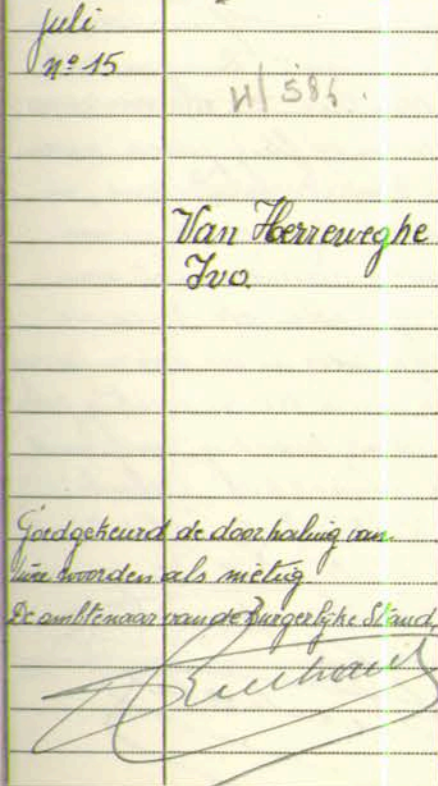 juli
nº 15
H/ 584.
Van Herreweghe
Ivo.
Goedgekeurd de doorhaling van
twee woorden als nietig
De ambtenaar van de Burgerlyke Stand,